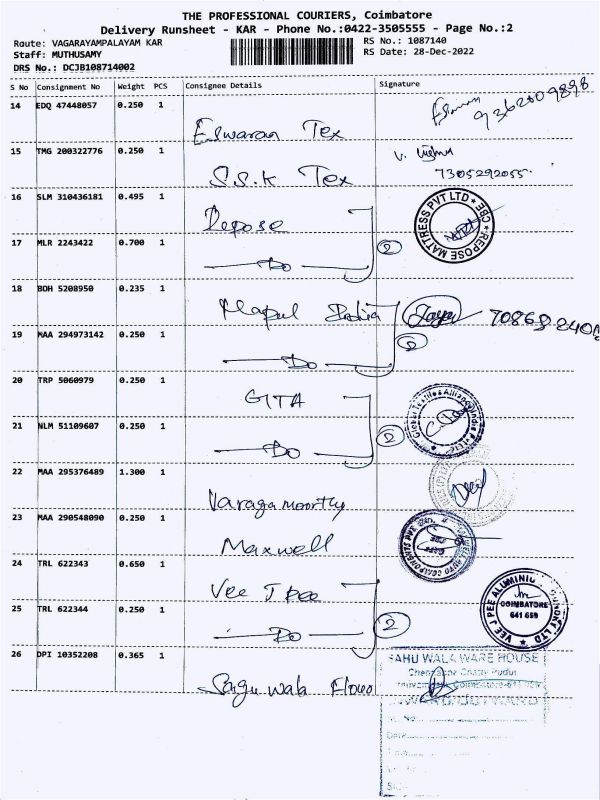 THE PROFESSIONAL COURIERS, Coimbatore
Delivery Runsheet - KAR - Phone No.:0422-3505555 - Page No.:2
Route: VAGARAYAMPALAYAM KAR
RS No.: 1087140
Staff: MUTHUSAMY
RS Date: 28-Dec-2022
DRS No.: DCJB108714002
S No Consignment No Weight PCS Consignee Details Signature
14 EDQ 47448057 0.250 1 Eswaran Tex 9362609898
15 TMG 200322776 0.250 1 S.S.K Tex 7305292055
16 SLM 310436181 0.495 1 Repose
REPOSE MATTRESS PVT LTD CBE
17 MLR 2243422 0.700 1 Do 2
18 BOH 5208950 0.235 1 India
19 MAA 294973142 0.250 1 Do 2
20 TRP 5060979 0.250 1 GITA
Global Textiles Alliance India
21 NLM 51109607 0.250 1 Do 2
22 MAA 295376489 1.300 1 Varaga moorthy
23 MAA 290548090 0.250 1 Maxwell
AUTO COMPONENTS
24 TRL 622343 0.650 1 Vee J Pee
VEE J PEE ALUMINIUM FOUNDRY LTD
COIMBATORE
641 659
25 TRL 622344 0.250 1 Do 2
26 DPI 10352208 0.365 1 Sagu wala
SAHU WALA WARE HOUSE